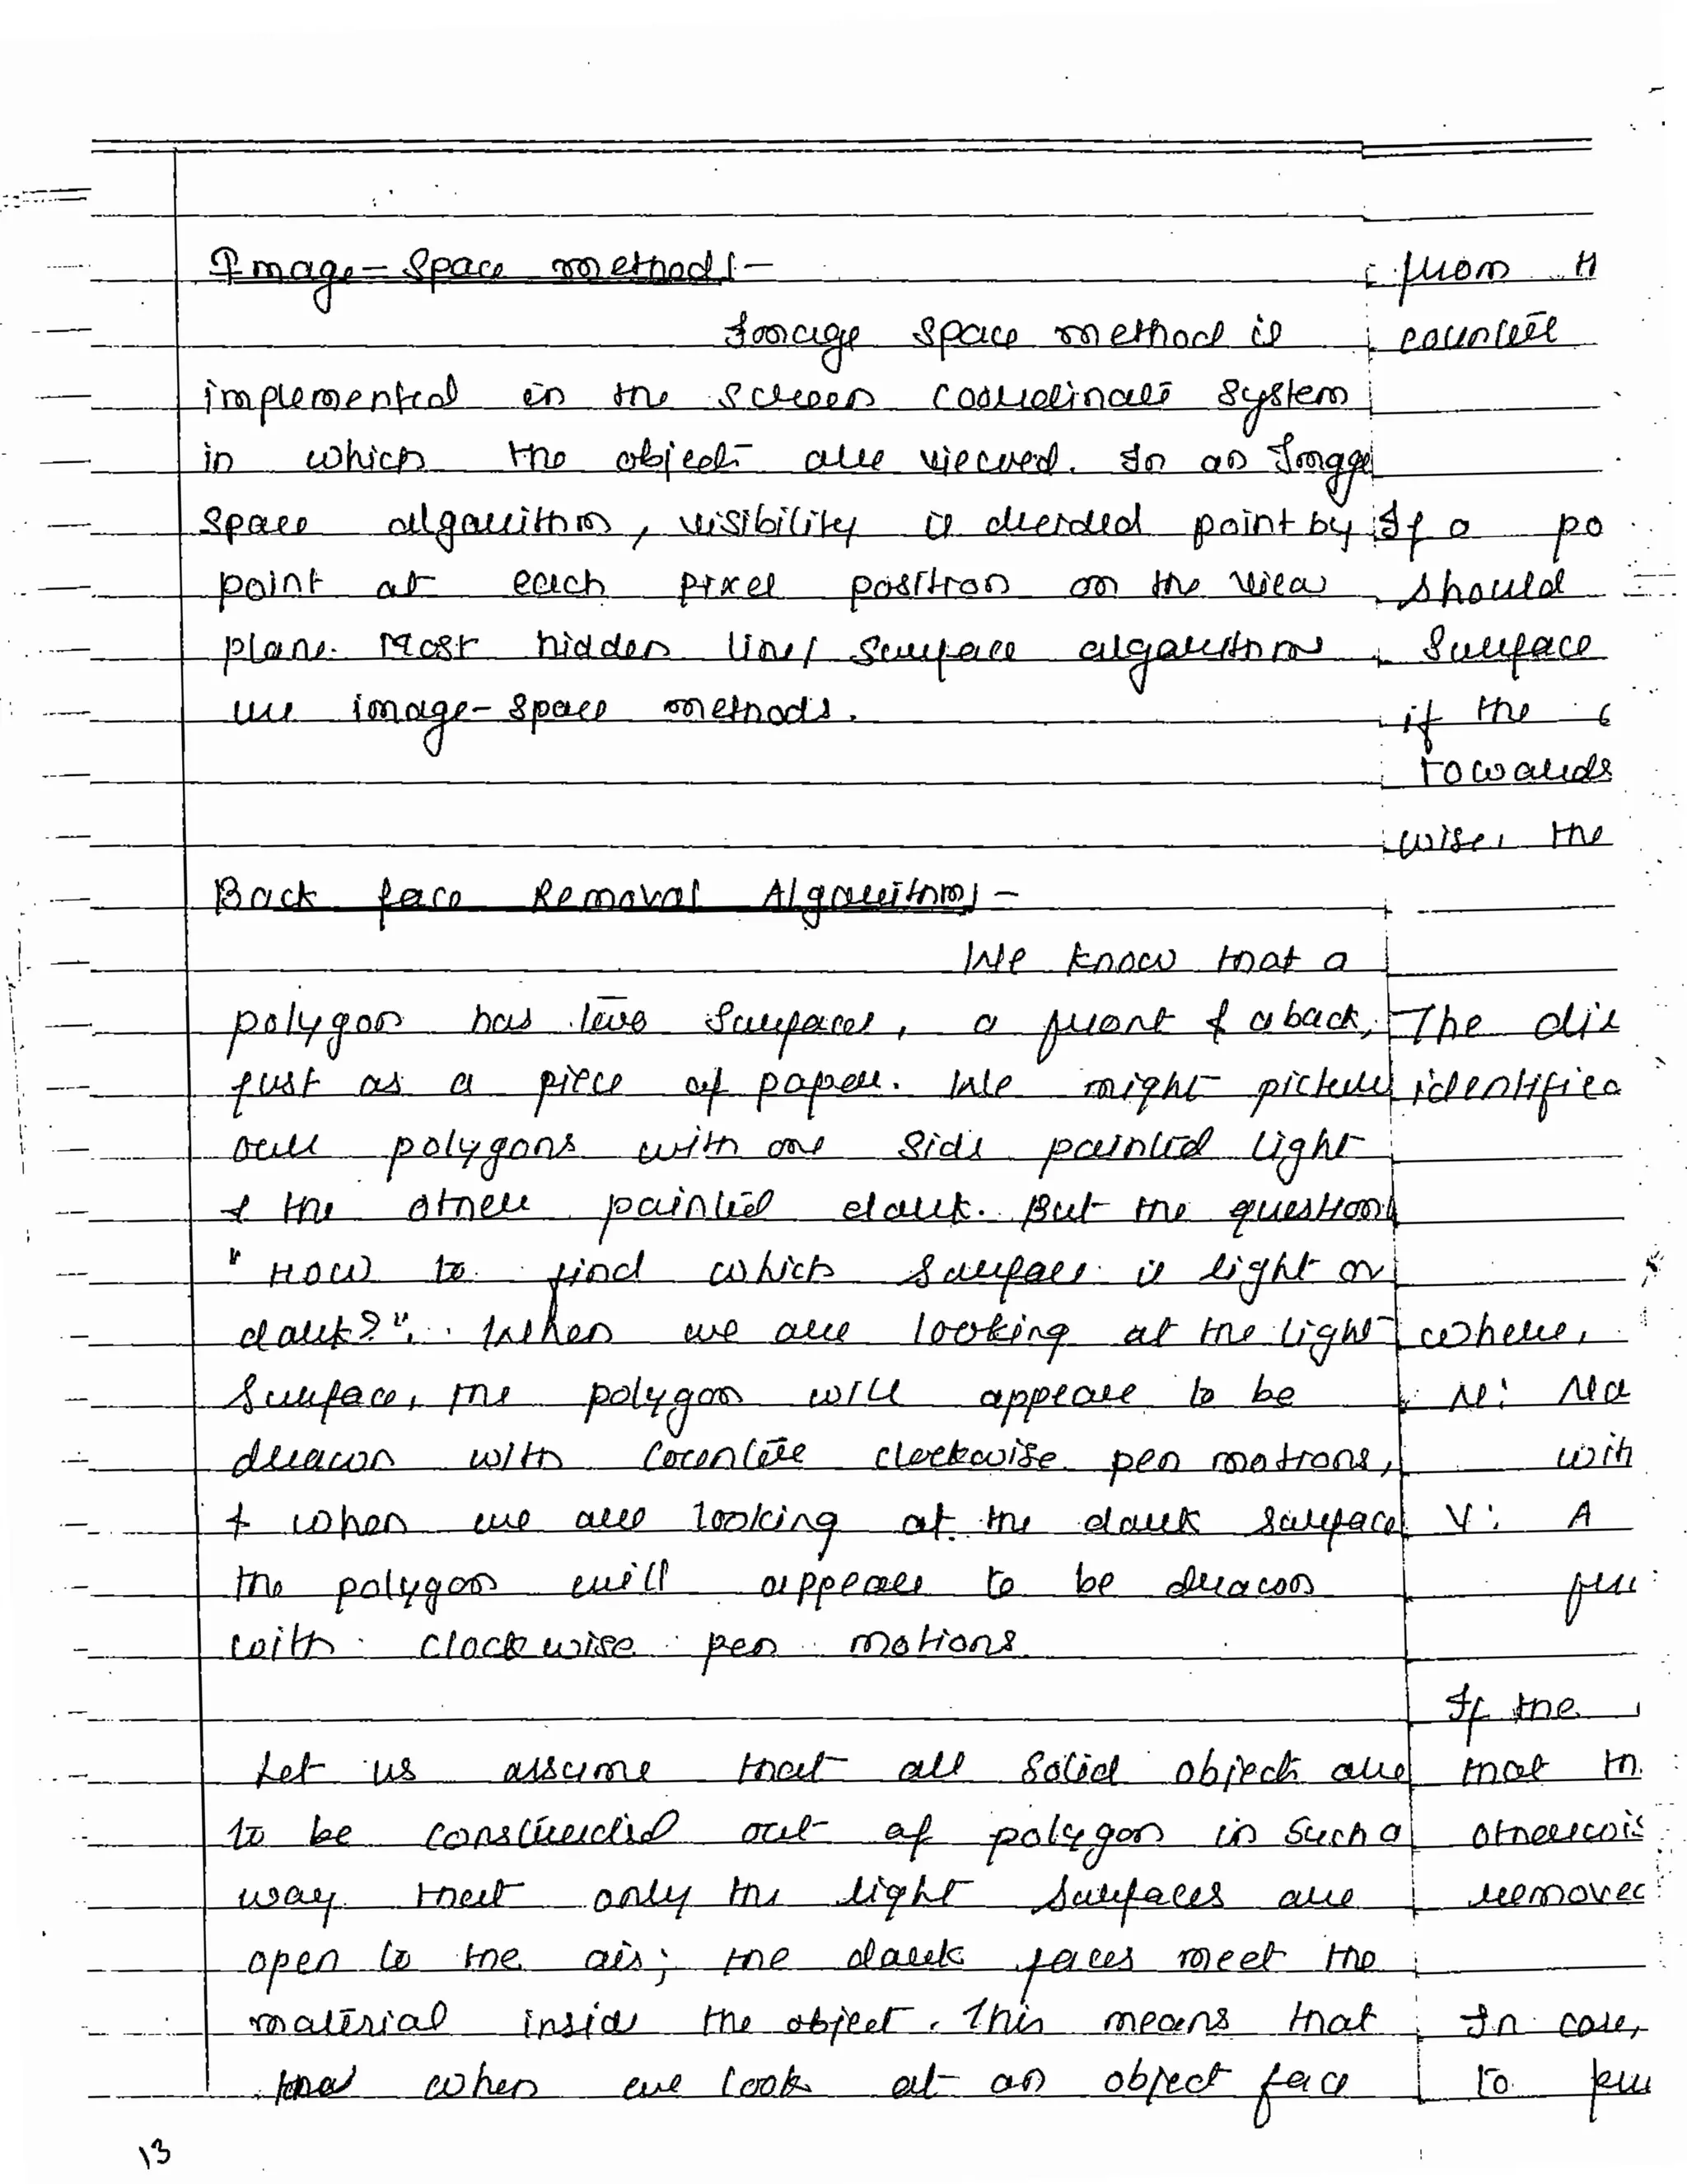 Image-Space methods:-
Image space method is
implemented in the screen coordinate system
in which the object are viewed. In an Image
space algorithm, visibility is decided point by
point at each pixel position on the view
plane. Most hidden line/surface algorithms
use image-space methods.
Back face Removal Algorithm:-
We know that a
polygon has two surfaces, a front & a back,
just as a piece of paper. We might picture
our polygons with one side painted light
& the other painted dark. But the question is
"How to find which surface is light or
dark?". When we are looking at the light
surface, the polygon will appear to be
drawn with counter clockwise pen motions,
& when we are looking at the dark surface
the polygon will appear to be drawn
with clockwise pen motions
Let us assume that all solid object are
to be constructed out of polygon in such a
way that only the light surfaces are
open to the air; the dark faces meet the
material inside the object. This means that
when we look at an object face
13
from
counter
If a po
should
surface
if the
towards
wise, the
The dir
identified
where,
N: Na
wit
V: A
If the
that
otherwis
removed
In case,
to